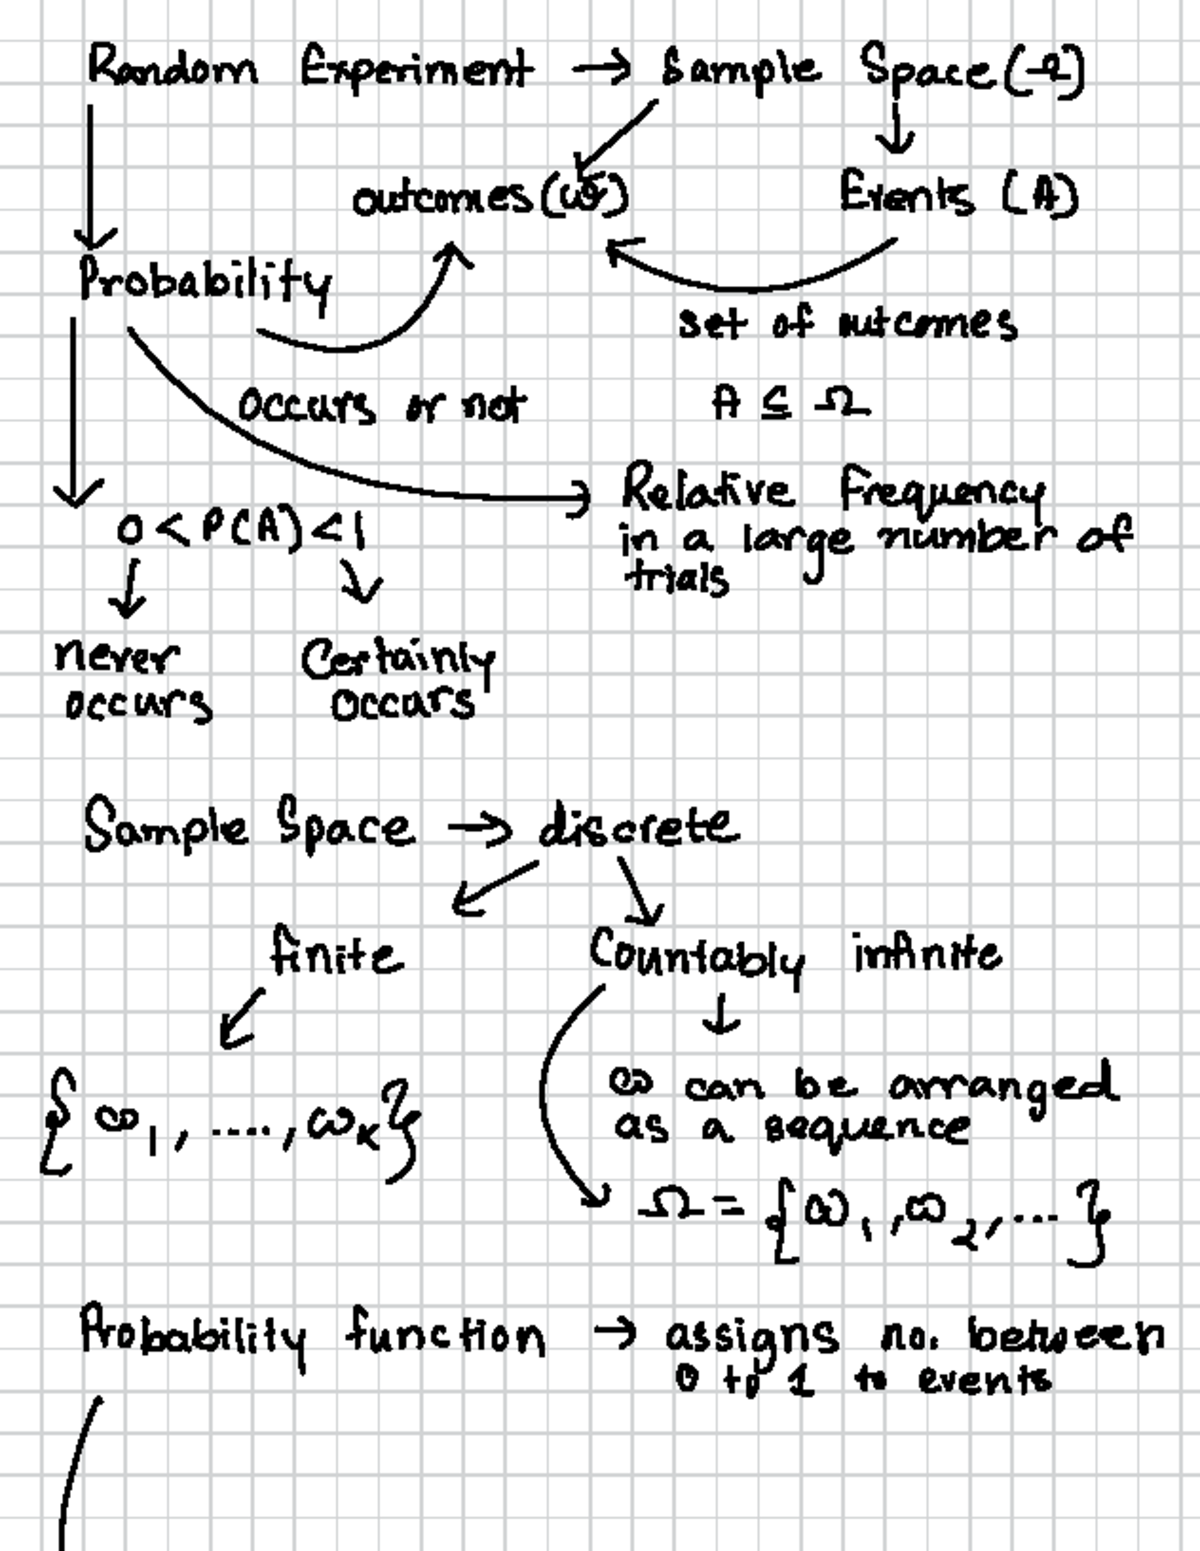 Random Experiment → Sample Space (Ω)
outcomes (ω) Events (A)
Probability
set of outcomes
occurs or not A ⊆ Ω
Relative frequency
0 < P(A) < 1 in a large number of
trials
never Certainly
occurs occurs
Sample Space → discrete
finite Countably infinite
ω can be arranged
{ ω₁, ...., ωₖ } as a sequence
Ω = { ω₁, ω₂, ... }
Probability function → assigns no. between
0 to 1 to events